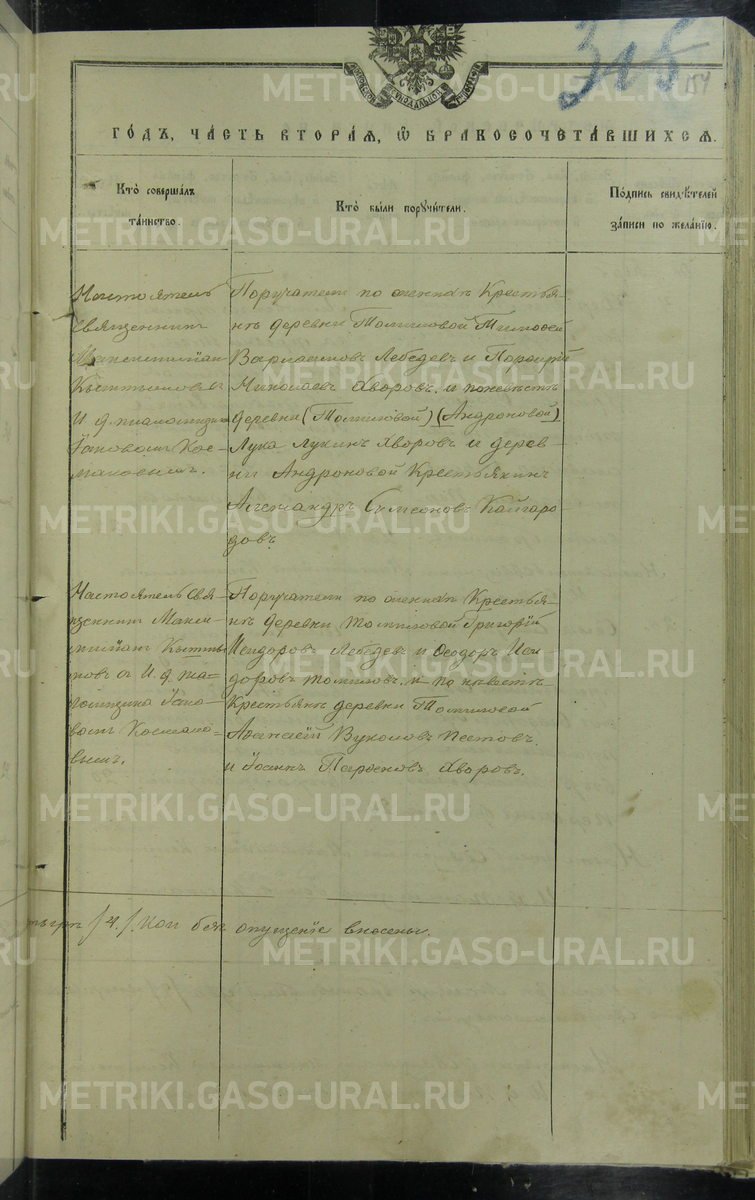 315
154
ГО́ДЪ, ЧА́СТЬ ВТОРА́Я, Ѿ БРАКОСОЧЕТА́ВШИХСѦ.
Кто̀ соверша́лъ
та́инство.
Кто̀ бы́ли пору́чи́тели.
По́дпись свидѣ́телей
за́писи по жела́нїю.
Настоятель
священникъ
Максимилїан
Кыштымовъ
И. д. псаломщика
Іаковомъ Кос-
маковымъ.
Поручатели по женихѣ Крестья-
нѣ деревни Томиловой Тимоѳей
Варлаамовъ Лебедевъ и Порфирій
Николаевъ Хворовъ. и по невѣстѣ
деревни (Томиловой) (Андроновой)
Лука Лукинъ Хворовъ и дерев-
ни Андроновой Крестьянинъ
Александръ Симеоновъ Кайгаро-
довъ.
Настоятель свя-
щенникъ Макси-
милїанъ Кышты-
мовъ съ И. д. пса-
ломщика Іако-
вомъ Космако-
вымъ.
Поручатели по женихѣ Крестья-
нѣ деревни Томиловой Григорїй
Исидоровъ Лебедев и Ѳеодоръ Иси-
доровъ Томиловъ. и по невѣстѣ
Крестьянѣ деревни Томиловой
Аѳанасїй Вуколовъ Пестовъ
и Іоаннъ Парѳеновъ Хворовъ.
/4/. Кои без опущенїе внесены.
METRIKI.GASO-URAL.RU